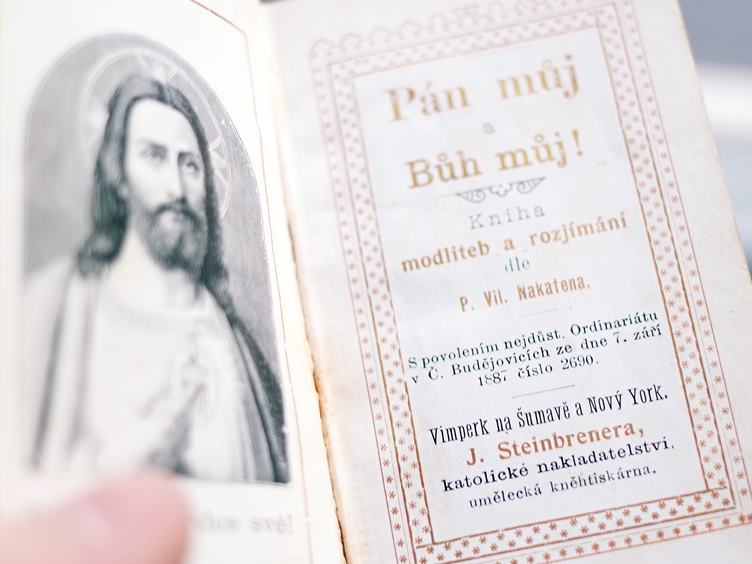 své!
Pán můj
a
Bůh můj!
Kniha
modliteb a rozjímání
dle
P. Vil. Nakatena.
S povolením nejdůst. Ordinariátu
v Č. Budějovicích ze dne 7. září
1887 číslo 2690.
Vimperk na Šumavě a Nový York.
J. Steinbrenera,
katolické nakladatelství,
umělecká kněhtiskárna.